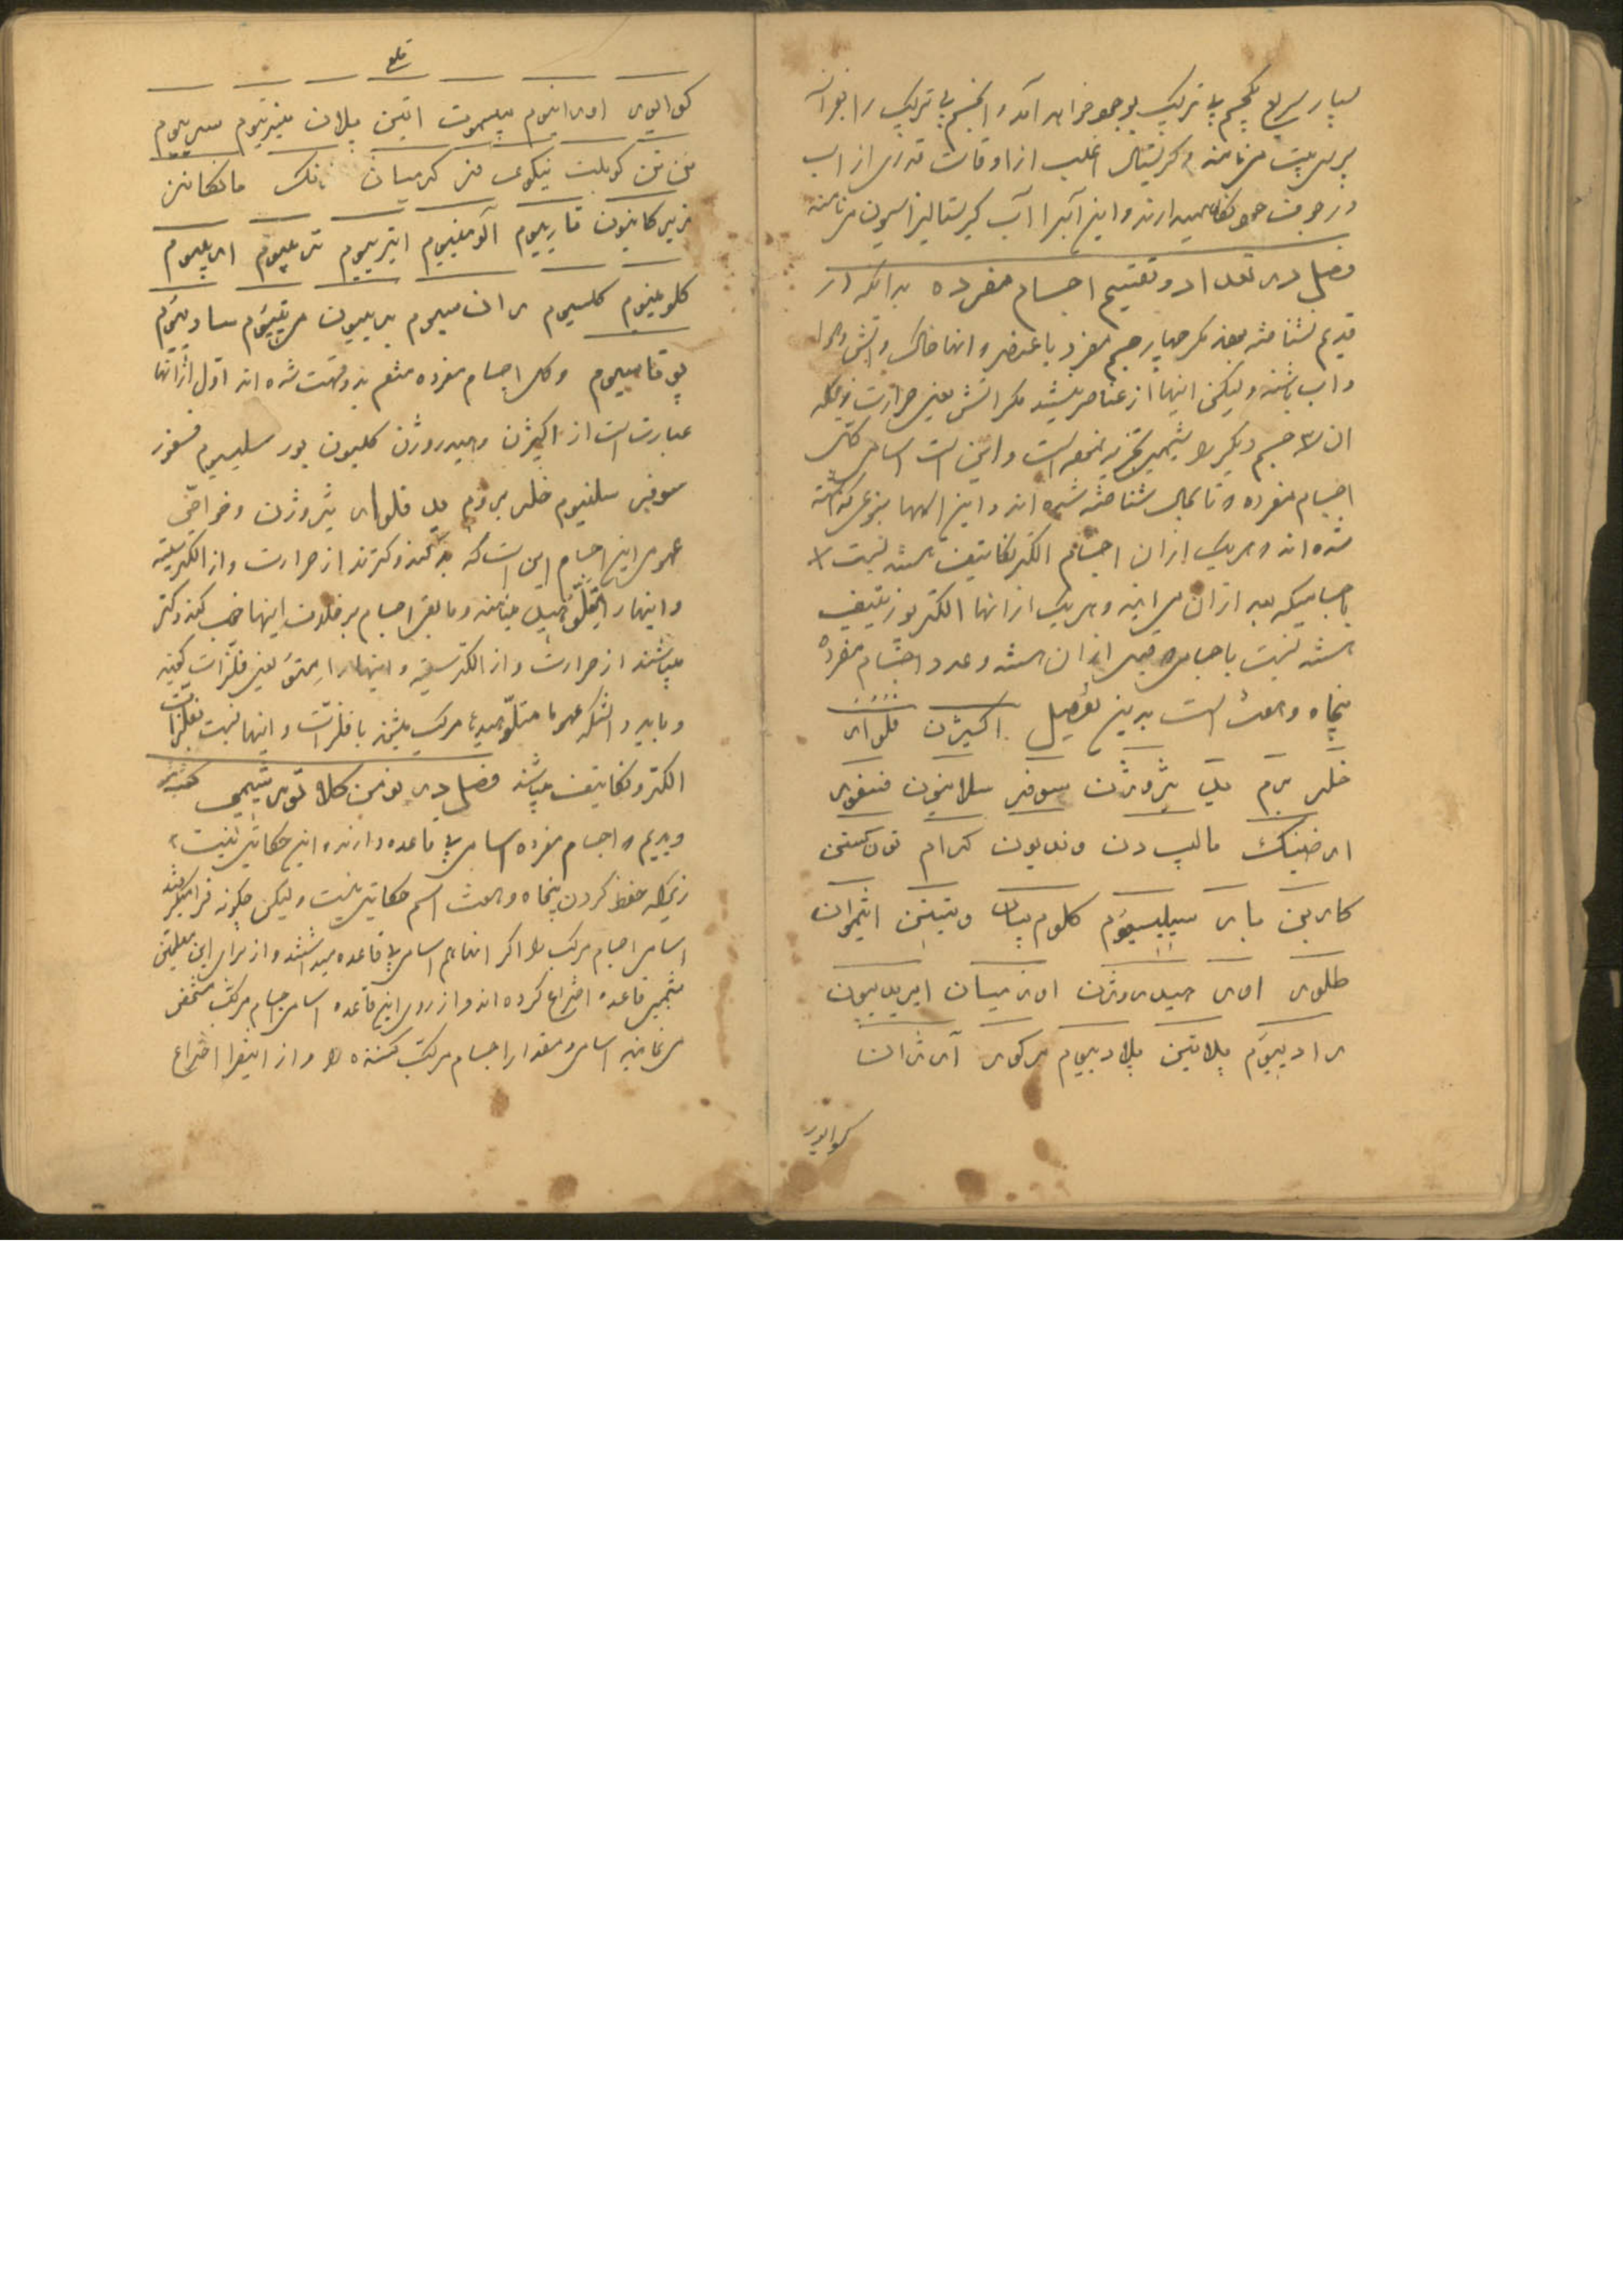 بسیار سریع یکجسم بی ترکیب بوجود خواهد آمد و انجسم بی ترکیب را بفرانسه
پرسی پیت مینامند و کریستال اغلب از اوقات قدری از اب
در جوف خود نگاه میدارند و این آبرا آب کریستالیزاسیون مینامند
فصل در تعداد و تقسیم اجسام مفرده بدانکه در
قدیم نشناخته بودند مکر چهار جسم مفرد یا عنصر و انها خاک و آتش و هوا
و اب باشند ولیکن اینها از عناصر نیستند مکر آتش یعنی حرارت
ان سه جسم دیکر را شیمی تجزیه نموده است و این است اسامی کل
اجسام مفرده که تا بحال شناخته شده اند و این اسمها بنوعی که نوشته
شده اند هر یک ازان اجسام الکترنکاتیف هستند نسبت
باجسامیکه بعد ازان می ایند و هر یک از انها الکتر پوزیتیف
هستند نسبت باجسامی که قبل ازان هستند و عدد اجسام مفرده
پنجاه و هفت است بدین تفصیل اکسیژن فلوار
خلر برم ید نثروژن سوفر سلانیون فسفور
ارضنیک مالیب دن وندیون کرام تون کستن
کاربن بار سیلیسیوم کلوم پیان و تیتن انتموان
طلور اور هیدروژن اوزمیان ایریدییون
رادییوم پلاتین پلادییوم مرکور آرژان
کوایور
قلع
کوایور اورانیوم بیسموت اتین پلان سریوم
کوبلت نیکوی فر کدمیان زنک مانکانز
زیرکانیون تاریوم آلومنیوم ایتریوم تربیوم اربیوم
کلوسنیوم کلسیوم ران سیوم بریون منیزیوم سادییوم
پوتاسیوم و کل اجسام مفرده منقسم بدو قسمت شده اند اول از انها
عبارت است از اکسیژن و هیدروژن کلبون بور سلیسیوم فسفور
سوفر سلنیوم خلر بروم ید فلوار نثروژن و خواص
عمومی این اجسام این است که بد کننده کترند از حرارت و از الکتریسیته
و اینها را متلوئید مینامند و مابقی اجسام بر خلاف اینها خوب کننده کتر
میباشند از حرارت و از الکتریسیته و اینها را متو یعنی فلزات کفته
و باید دانست که عموما متلوئیدها مرکب میشوند با فلزات و اینها نسبت بفلزات
الکترونکاتیف میباشند فصل در نومن کلا تور شیمی کفته شد
و دیدیم که اجسام مفرده اسامی بی قاعده دارند و این حکایتی نیست
زیراکه حفظ کردن پنجاه و هفت اسم حکایتی نیست ولیکن چکونه فرا میکرفتند
اسامی اجسام مرکب را اکر انها هم اسامی بی قاعده میداشتند و از برای این معلمین
شیمی قاعده اختراع کرده اند و از روی این قاعده اسامی جسام مرکب مشخص
می نماید اسامی و مقدار اجسام مرکب کننده را و از اینقرار اختراع